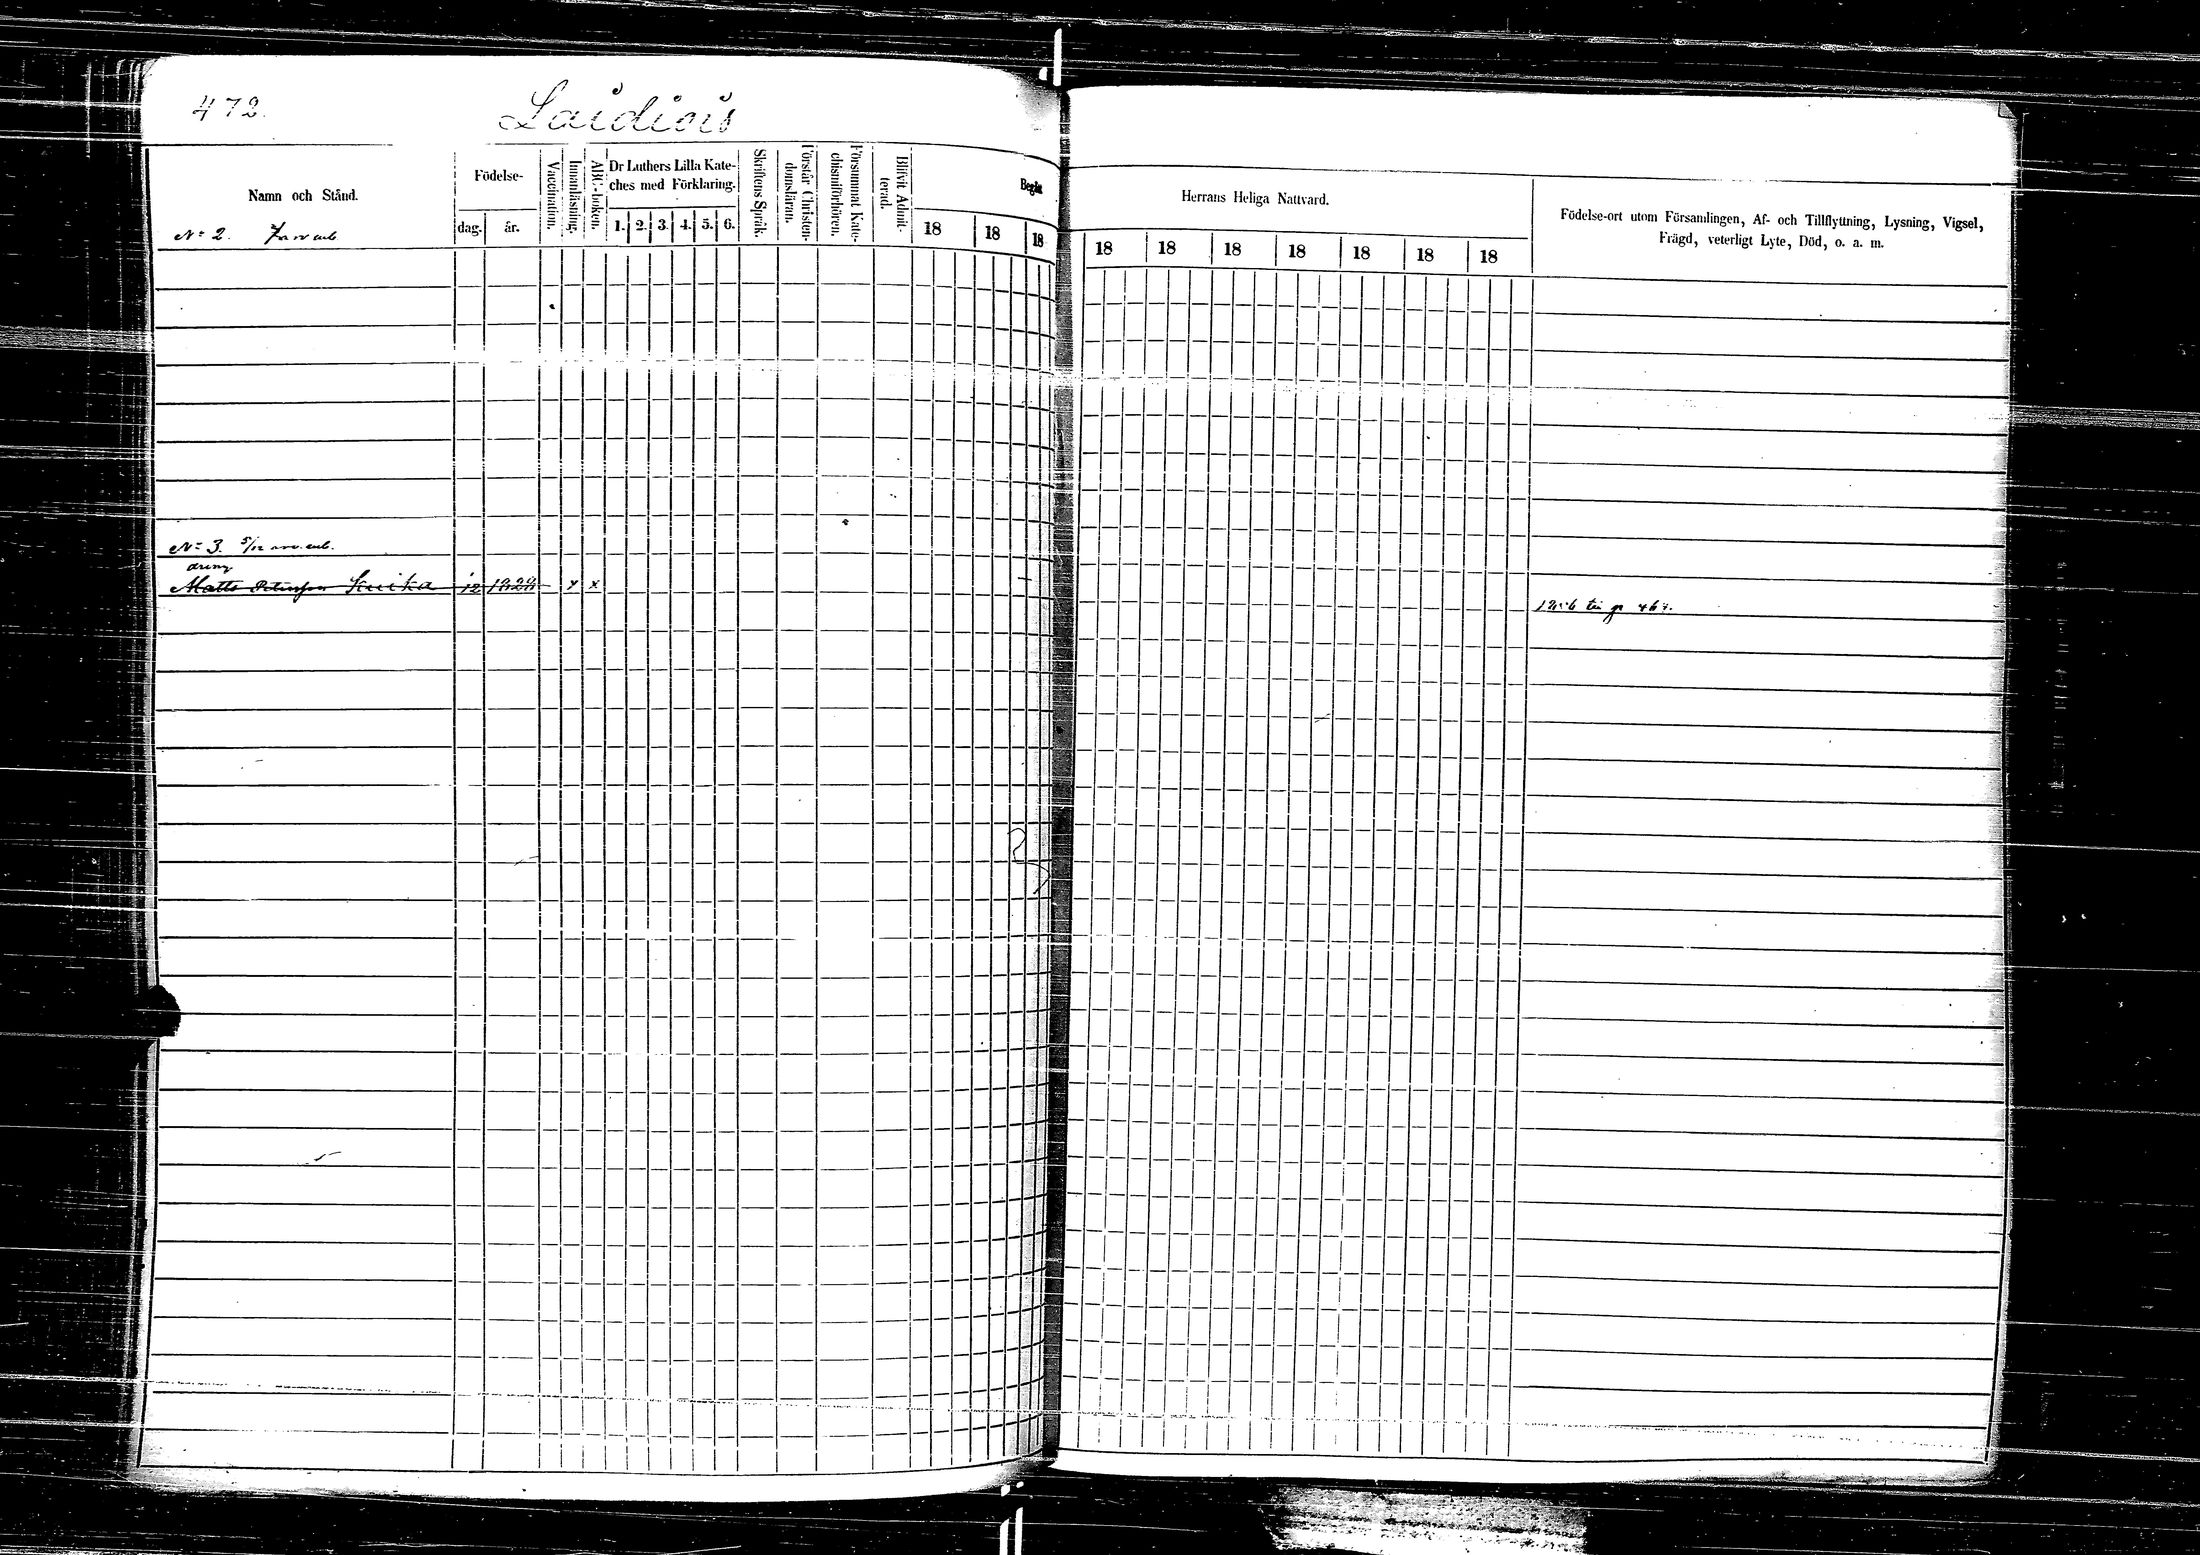 472.
Laidiois
Namn och Stånd.
No 2.
Födelse-
dag. år.
Vaccination.
Innanläsning.
ABC-boken.
Dr Luthers Lilla Kate-
ches med Förklaring.
1. 2. 3. 4. 5. 6.
Skriftens Språk.
Förstår Christen-
domsläran.
Försummat Kate-
chismiförhören.
Blifvit Admit-
terad.
Begått
18 18 18
Herrans Heliga Nattvard.
18 18 18 18 18 18 18
Födelse-ort utom Församlingen, Af- och Tillflyttning, Lysning, Vigsel,
Frägd, veterligt Lyte, Död, o. a. m.
No 3. 5/12
dreng
Matts Petersson 12 1828 x x